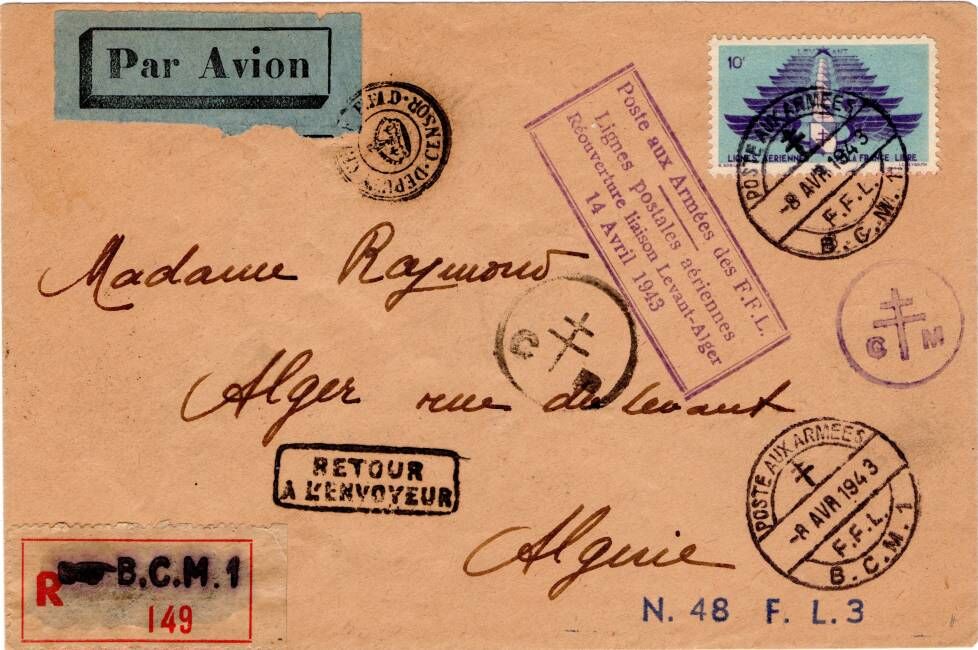 Par Avion
CENSOR
Poste aux Armées des F.F.L.
Lignes postales aériennes
Réouverture liaison Levant-Alger
14 Avril 1943
10f
LEVANT
LIGNES AERIENNES
LA FRANCE LIBRE
POSTE AUX ARMÉES
-8 AVR 1943
F.F.L.
B.C.M. 1
Madame Raymond
C M
C M
Alger rue du Levant
RETOUR
A L'ENVOYEUR
POSTE AUX ARMÉES
-8 AVR 1943
F.F.L.
B.C.M. 1
Algerie
R B.C.M. 1
149
N. 48 F. L. 3